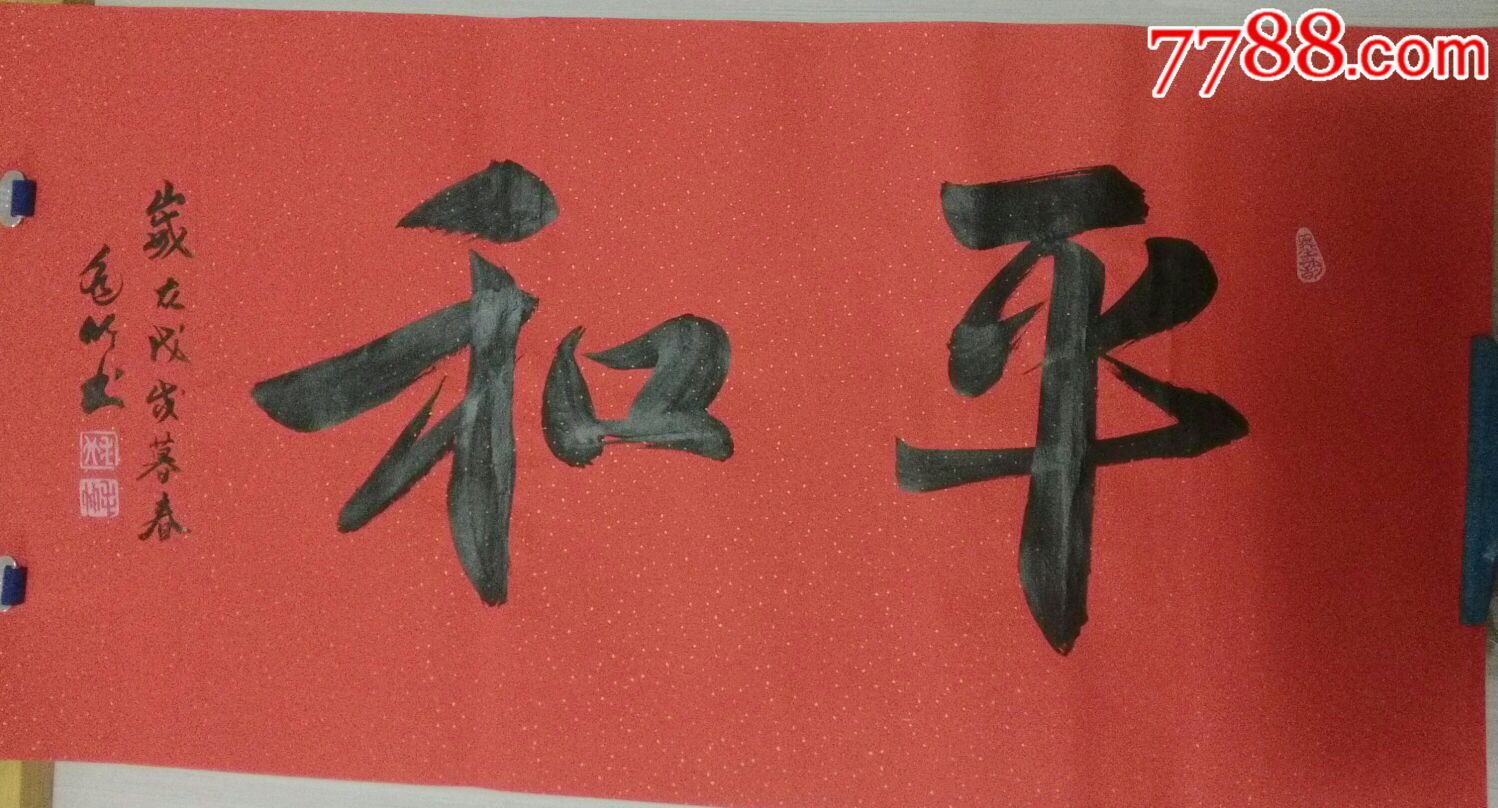 7788.com
平和
歲在戊戌暮春
书